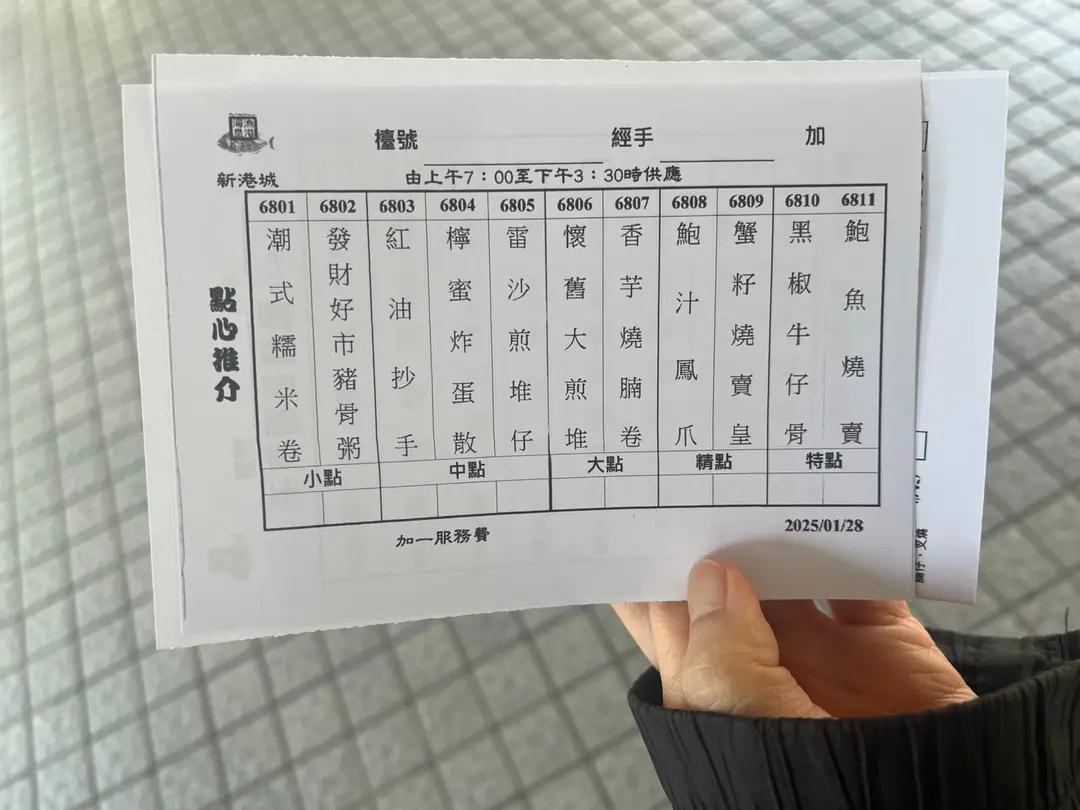 檯號 經手 加
新港城
由上午7：00至下午3：30時供應
點心推介
6801 6802 6803 6804 6805 6806 6807 6808 6809 6810 6811
潮式糯米卷
發財好市豬骨粥
紅油抄手
檸蜜炸蛋散
雷沙煎堆仔
懷舊大煎堆
香芋燒腩卷
鮑汁鳳爪
蟹籽燒賣皇
黑椒牛仔骨
鮑魚燒賣
小點 中點 大點 精點 特點
加一服務費
2025/01/28